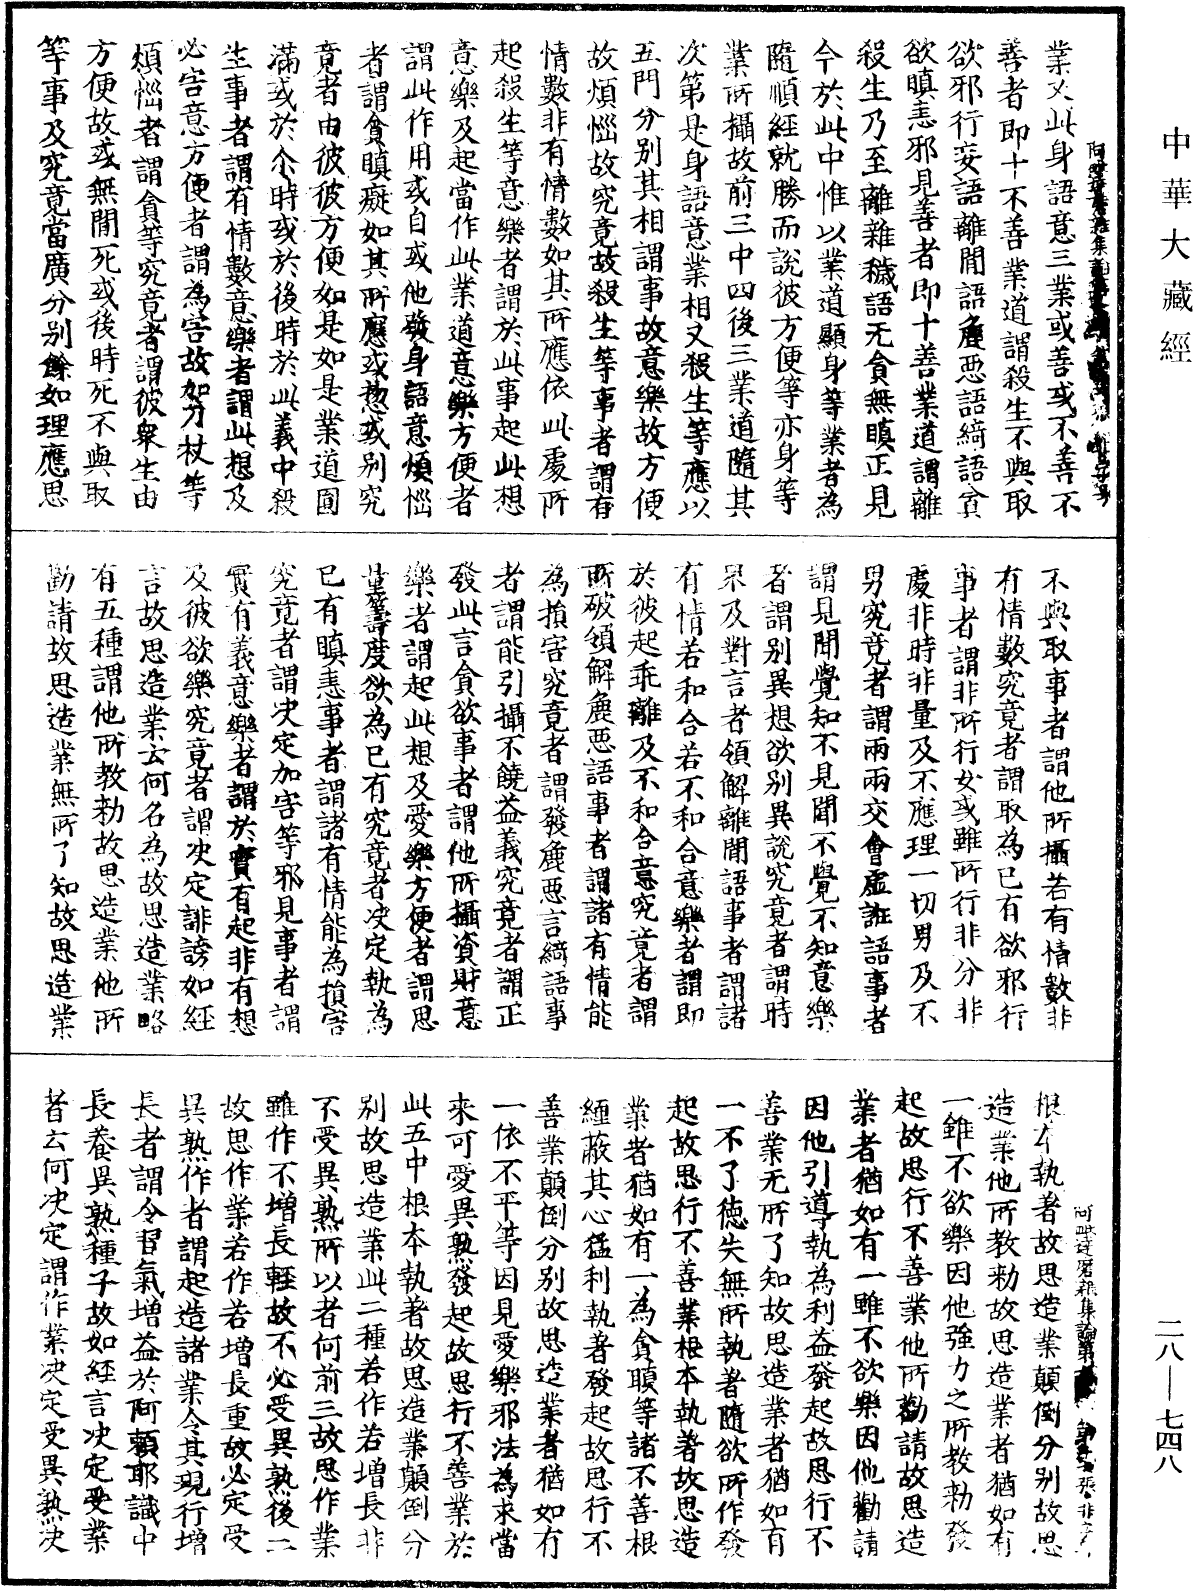 中華大藏經
業又此身語意三業或善或不善不
善者即十不善業道謂殺生不與取
欲邪行妄語離間語麁惡語綺語貪
欲瞋恚邪見善者即十善業道謂離
殺生乃至離雜穢語无貪無瞋正見
今於此中惟以業道顯身等業者為
隨順經就勝而說彼方便等亦身等
業所攝故前三中四後三業道隨其
次第是身語意業相又殺生等應以
五門分別其相謂事故意樂故方便
故煩惱故究竟故殺生等事者謂有
情數非有情數如其所應依此處所
起殺生等意樂者謂於此事起此想
意樂及起當作此業道意樂方便者
謂此作用或自或他發身語意煩惱
者謂貪瞋癡如其所應或惣或別究
竟者由彼彼方便如是如是業道圓
滿或於尒時或於後時於此義中殺
生事者謂有情數意樂者謂此想及
必害意方便者謂為害故加刀杖等
煩惱者謂貪等究竟者謂彼衆生由
方便故或無間死或後時死不與取
等事及究竟當廣分別餘如理應思
不與取事者謂他所攝若有情數非
有情數究竟者謂取為已有欲邪行
事者謂非所行女或雖所行非分非
處非時非量及不應理一切男及不
男究竟者謂兩兩交會虛誑語事者
謂見聞覺知不見聞不覺不知意樂
者謂別異想欲別異說究竟者謂時
衆及對言者領解離間語事者謂諸
有情若和合若不和合意樂者謂即
於彼起乖離及不和合意究竟者謂
所破領解麁惡語事者謂諸有情能
為損害究竟者謂發麁惡言綺語事
者謂能引攝不饒益義究竟者謂正
發此言貪欲事者謂他所攝資財意
樂者謂起此想及愛樂方便者謂思
量籌度欲為已有究竟者決定執為
已有瞋恚事者謂諸有情能為損害
究竟者謂決定加害等邪見事者謂
實有義意樂者謂於實有起非有想
及彼欲樂究竟者謂決定誹謗如經
言故思造業云何名為故思造業略
有五種謂他所教勑故思造業他所
勸請故思造業無所了知故思造業
根本執著故思造業顛倒分別故思
造業他所教勑故思造業者猶如有
一雖不欲樂因他強力之所教勑發
起故思行不善業他所勸請故思造
業者猶如有一雖不欲樂因他勸請
因他引導執為利益發起故思行不
善業无所了知故思造業者猶如有
一不了德失無所執著隨欲所作發
起故思行不善業根本執著故思造
業者猶如有一為貪瞋等諸不善根
纏蔽其心猛利執著發起故思行不
善業顛倒分別故思造業者猶如有
一依不平等因見愛樂邪法為求當
來可愛異熟發起故思行不善業於
此五中根本執著故思造業顛倒分
別故思造業此二種若作若增長非
不受異熟所以者何前三故思作業
雖作不增長輕故不必受異熟後二
故思作業若作若增長重故必定受
異熟作者謂起造諸業令其現行增
長者謂令習氣增益於阿賴耶識中
長養異熟種子故如經言決定受業
者云何決定謂作業決定受異熟決
二八—七四八